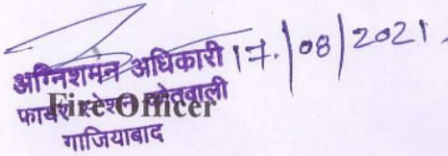 अग्निशमन अधिकारी 17/08/2021
फायर स्टेशन कोतवाली
Fire Officer
गाजियाबाद